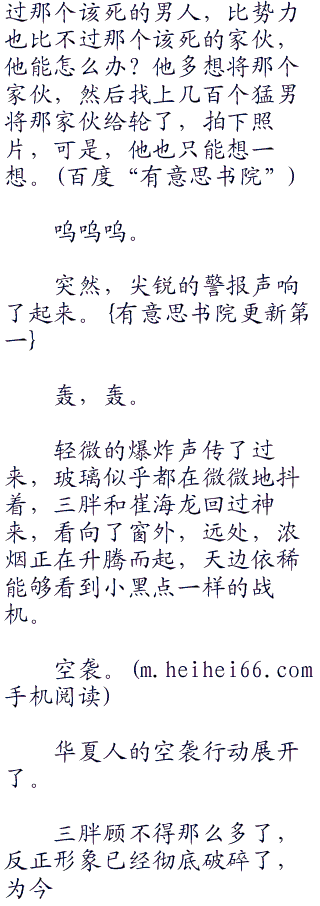 过那个该死的男人，比势力
也比不过那个该死的家伙，
他能怎么办？他多想将那个
家伙，然后找上几百个猛男
将那家伙给轮了，拍下照
片，可是，他也只能想一
想。(百度“有意思书院”)
呜呜呜。
突然，尖锐的警报声响
了起来。{有意思书院更新第
一}
轰，轰。
轻微的爆炸声传了过
来，玻璃似乎都在微微地抖
着，三胖和崔海龙回过神
来，看向了窗外，远处，浓
烟正在升腾而起，天边依稀
能够看到小黑点一样的战
机。
空袭。(m.heihei66.com
手机阅读)
华夏人的空袭行动展开
了。
三胖顾不得那么多了，
反正形象已经彻底破碎了，
为今